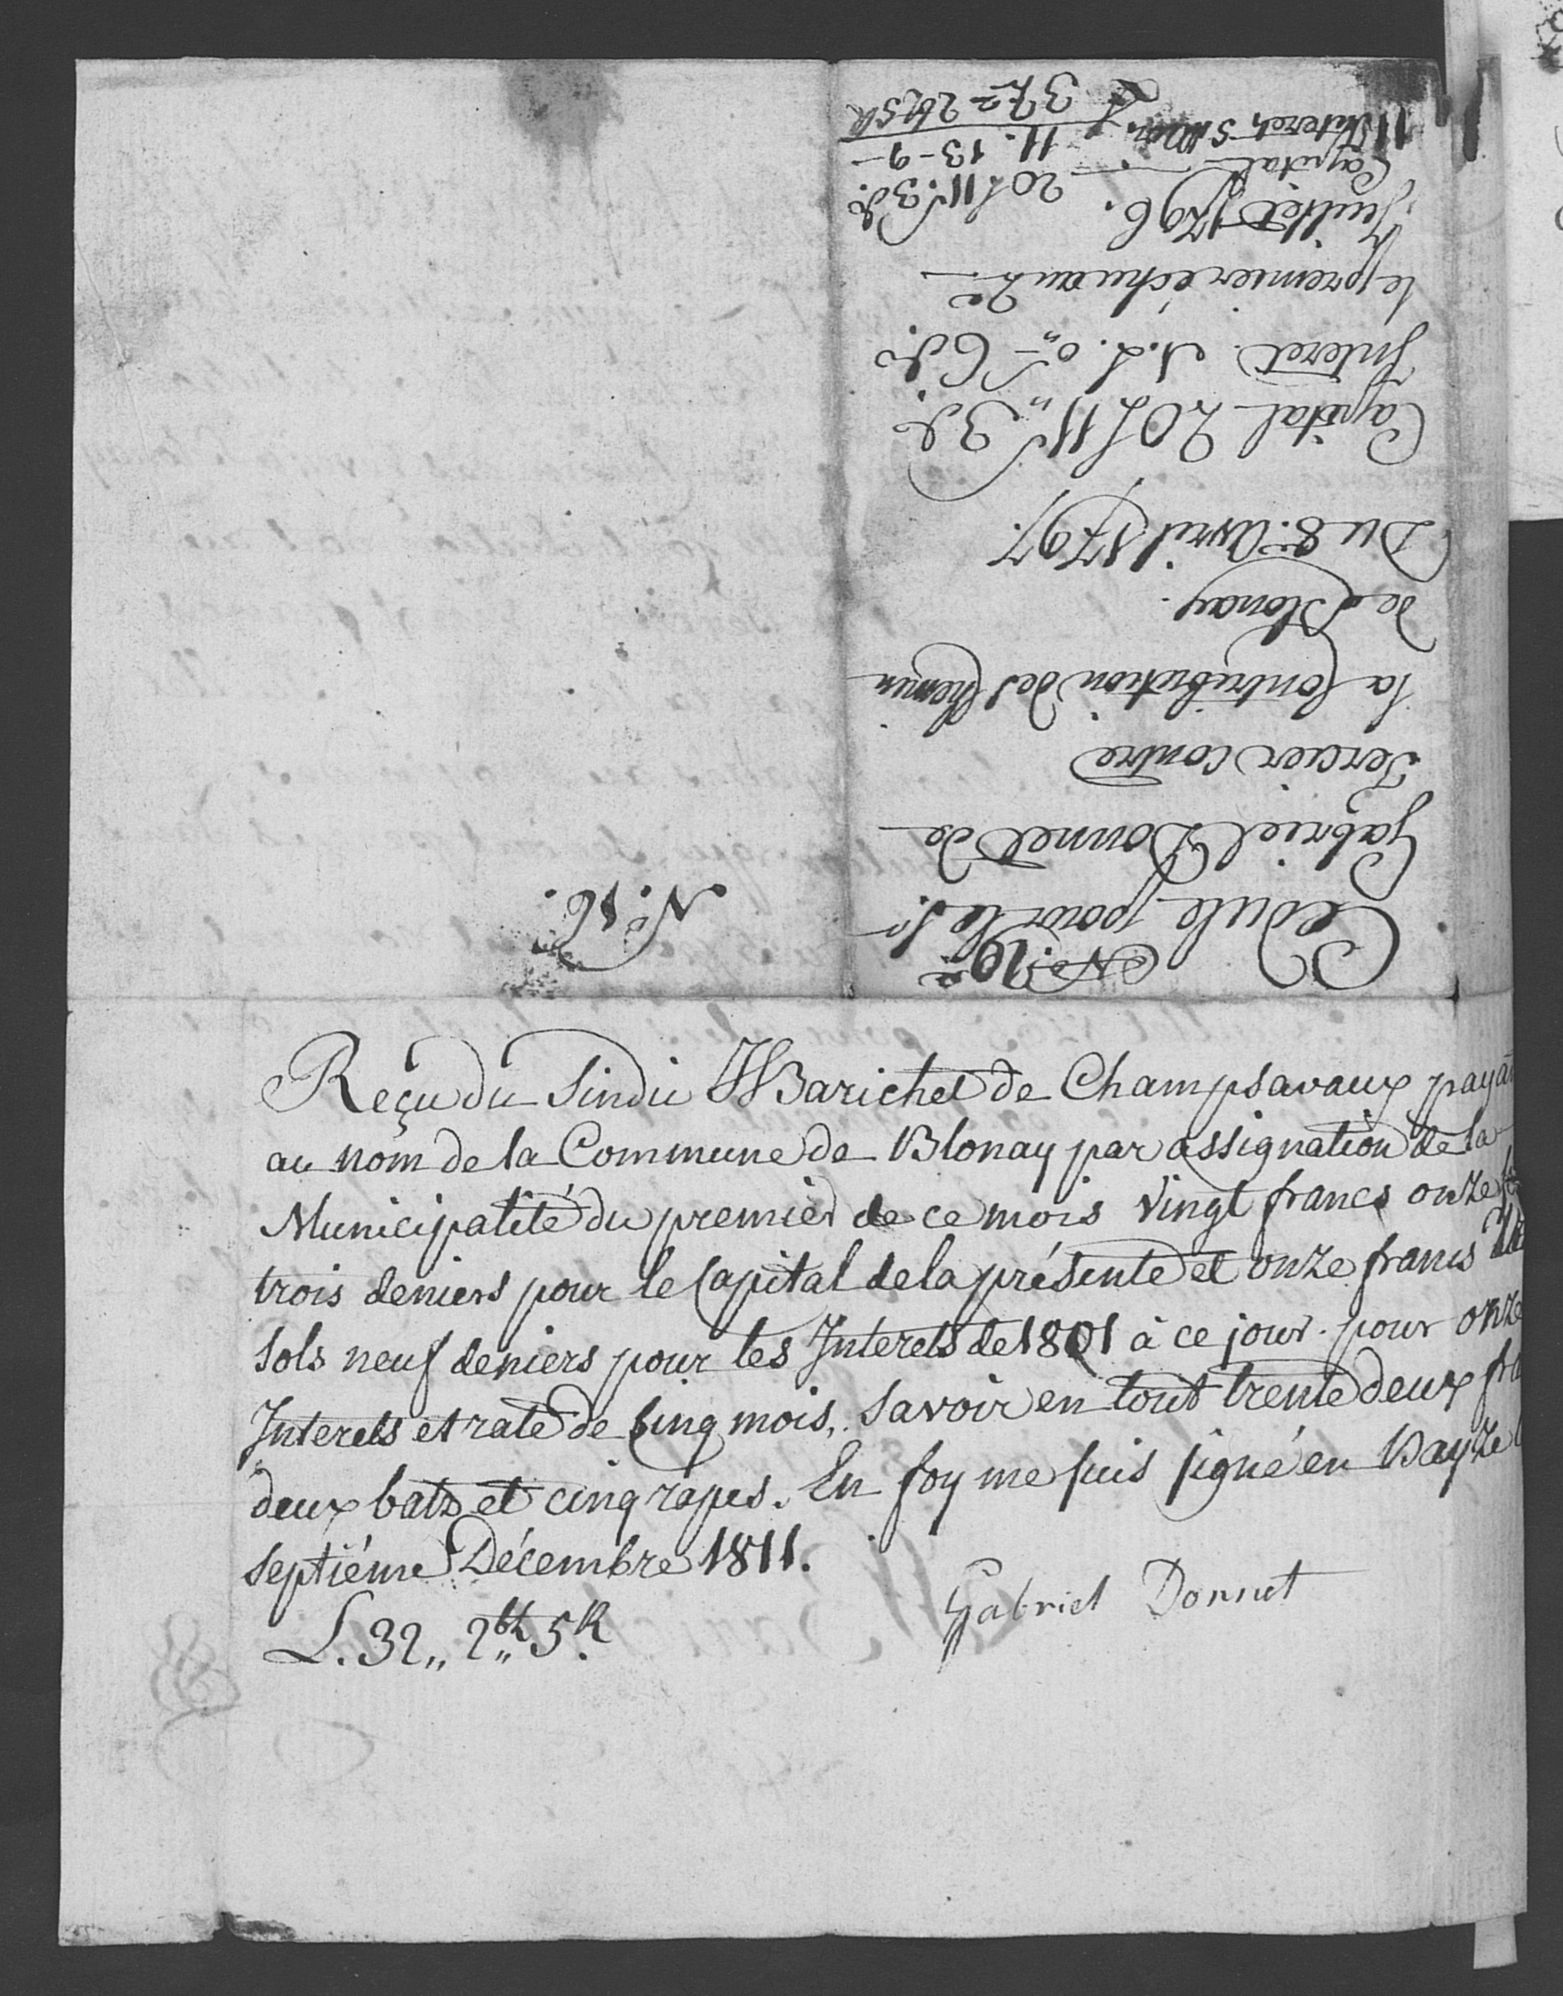 N.° 19.
Cedule pour le Sr.
Gabriel Donnet de
Tercier contre
la Contribution des Chemin
de Blonay.
Du 8.e Avril 1797.
Capital 20 L 11 „ 3 d.
Interet 1. L. 0 „ 6 d.
le premier échu au 2e
Juillet 1796.
Capital — 20 L 11 s. 3 d.
11 Interet, 5 Mois, 11. 13 - 9 -
L 32 = 2 bz 5 R
N.° 16.
Reçu du Sindic Barichet de Champsavaux payan
au nom de la Commune de Blonay par assignation de la
Municipalité du premier de ce mois Vingt francs onze
trois deniers pour le Capital de la présente et onze francs
sols neuf deniers pour les Interets de 1801 à ce jour. pour onze
Interets et rate de Cinq mois, Savoir en tout trente deux fra
deux batz et cinq rapes. En foy me suis signé en Bayze
septiéme Décembre 1811.
Gabriel Donnet
L. 32 „ 2 bz „ 5 R.